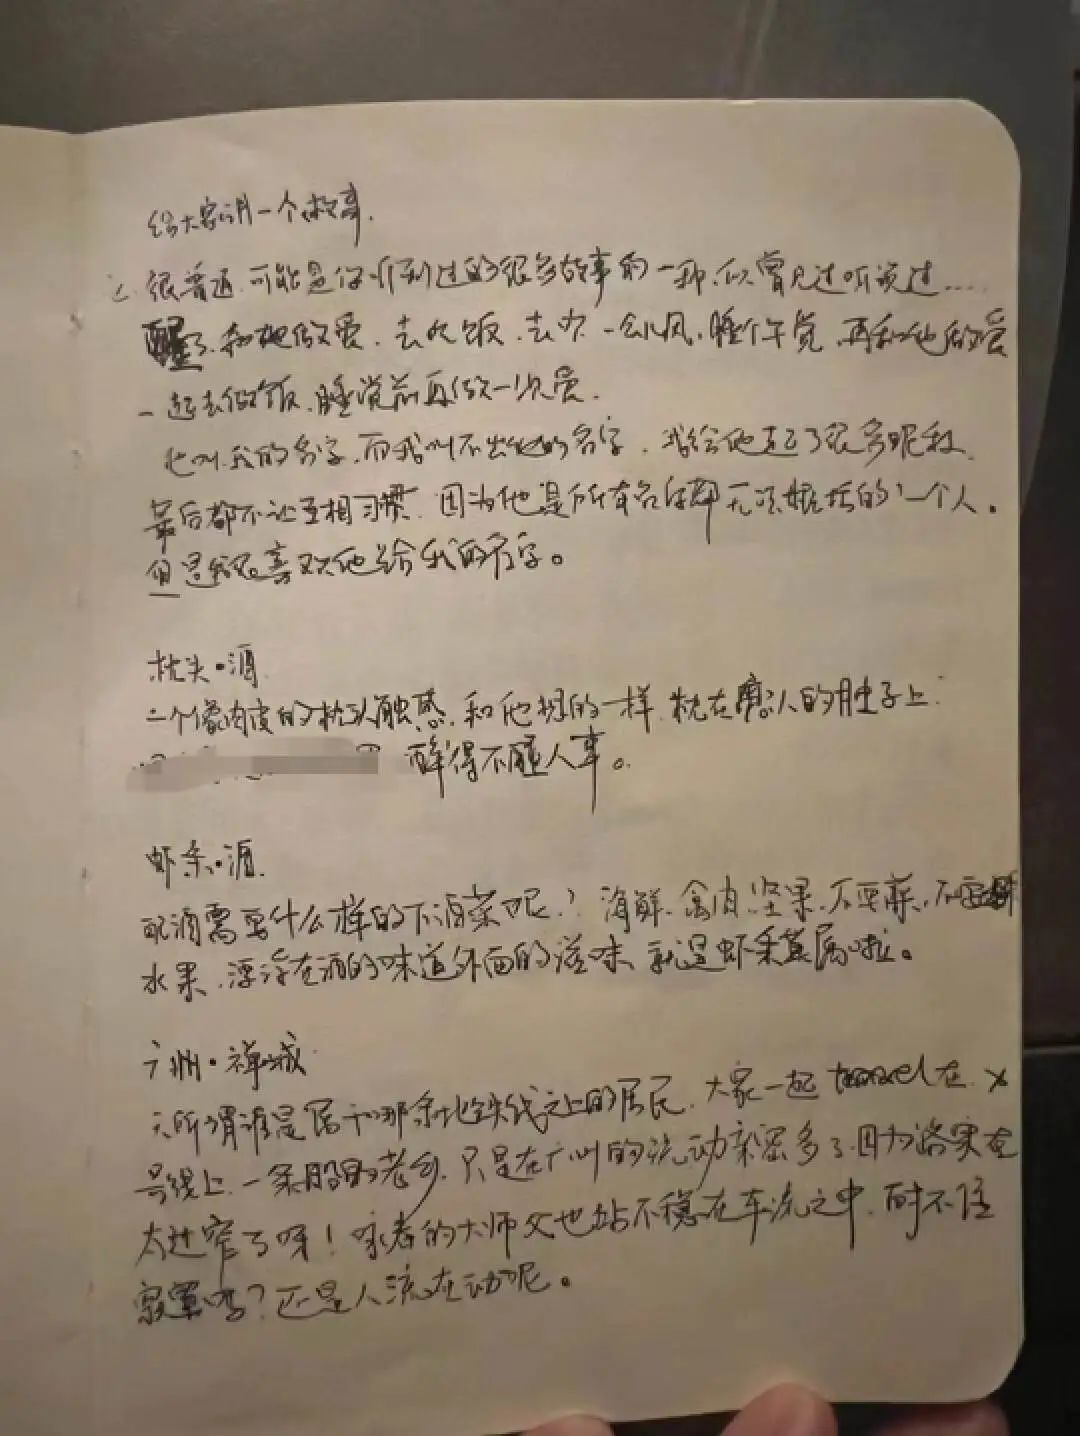 给大家讲一个故事.
很普通,可能是你听到过的很多故事的一种,似曾见过听说过……
醒了,和他做爱,去吃饭,去另一个小风,睡个午觉,再和他做爱
一起去做饭,睡觉前再做一次爱.
他叫我的名字,而我叫不出他的名字,我给他起了很多昵称,
最后都不让互相习惯,因为他是所有名词都无法概括的一个人。
但是我很喜欢他给我的名字。
枕头·酒
一个像肉皮的枕头触感,和他想的一样,枕在 人的肚子上:
醉得不醒人事。
虾条·酒
配酒需要什么样的下酒菜呢?海鲜,禽肉,坚果,不要蔬,不要
水果,漂浮在酒的味道外面的滋味,就是虾条莫属啦。
广州·禅城
无所谓谁是属于那条地铁线之上的居民,大家一起travel在x
号线上,一条股的老乡,只是在广州的流动亲密多了,因为路实在
太过窄了呀!咏春的大师父也站不稳在车流之中,耐不住
寂寞吗?还是人流在动呢。